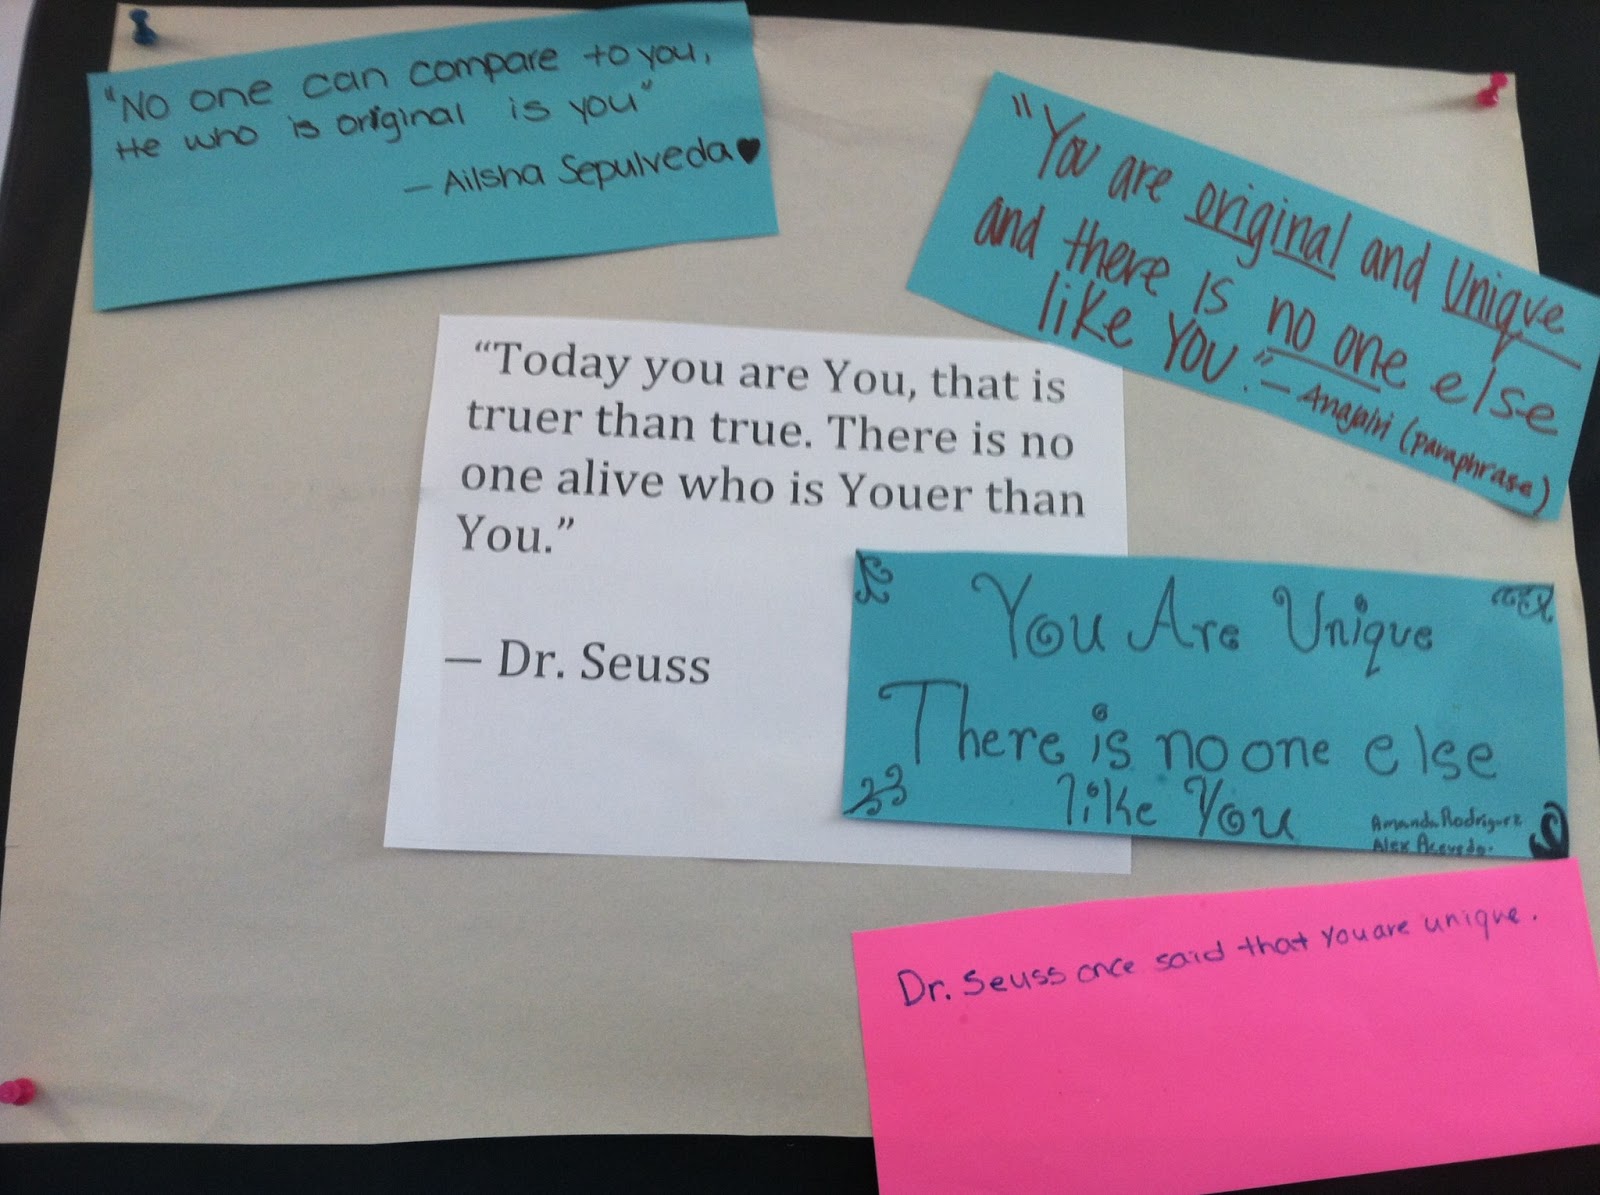 "No one can compare to you,
He who is original is you"
- Ailsha Sepulveda♥
"You are original and Unique
and there is no one else
like YOU." - Anajalri (paraphrase)
“Today you are You, that is
truer than true. There is no
one alive who is Youer than
You.”
— Dr. Seuss
You Are Unique
There is no one else
like You
Amanda Rodriguez
Alex Acevedo.
Dr. Seuss once said that you are unique.